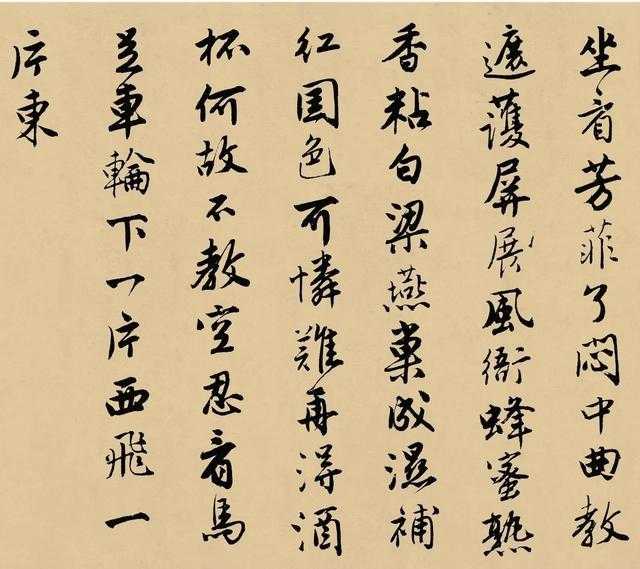 坐看芳菲了悶中曲教
遮護屏展風衙蜂蜜熟
香粘白梁燕巢成濕補
紅国色可憐難再得酒
杯何故不教空忍看馬
足車輪下一片西飛一
片東